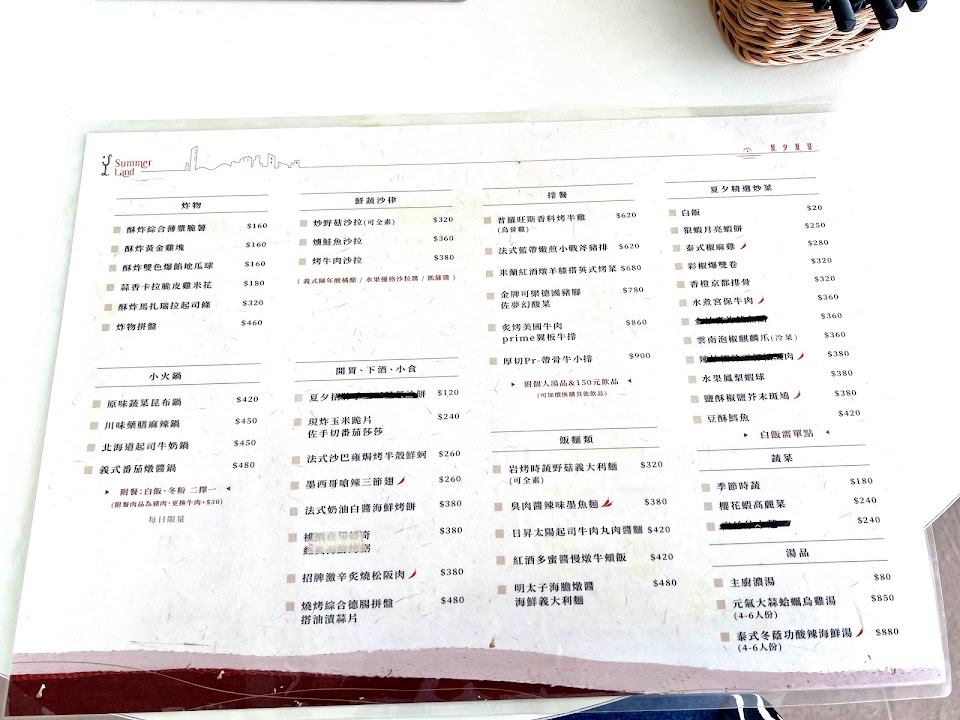 Summer
Land
夏夕夏景
炸物
酥炸綜合薄漿脆薯 $160
酥炸黃金雞塊 $160
酥炸雙色爆餡地瓜球 $160
蒜香卡拉脆皮雞米花 $180
酥炸馬扎瑞拉起司條 $320
炸物拼盤 $460
小火鍋
原味蔬菜昆布鍋 $420
川味藥膳麻辣鍋 $450
北海道起司牛奶鍋 $450
義式番茄燉醬鍋 $480
附餐:白飯、冬粉 二擇一
(附餐肉品為豬肉,更換牛肉+$30)
每日限量
鮮蔬沙律
炒野菇沙拉(可全素) $320
燻鮭魚沙拉 $360
烤牛肉沙拉 $380
( 義式陳年酸橘醋 / 水果優格沙拉醬 / 凱薩醬 )
開胃、下酒、小食
夏夕招 餅 $120
現炸玉米脆片 $240
佐手切番茄莎莎
法式沙巴雍焗烤半殼鮮蚵 $260
墨西哥嗆辣三節翅 $260
法式奶油白醬海鮮烤餅 $380
$380
招牌激辛炙燒松阪肉 $380
燒烤綜合德腸拼盤 $480
搭油漬蒜片
排餐
普羅旺斯香料烤半雞 $620
(烏骨雞)
法式藍帶嫩煎小戰斧豬排 $620
米蘭紅酒燉羊膝搭英式烤菜 $680
金牌可樂德國豬腳 $780
佐夢幻酸菜
炙烤美國牛肉 $860
prime翼板牛排
厚切Pr-帶骨牛小排 $900
附個人湯品&150元飲品
(可加價換購其他飲品)
飯麵類
岩烤時蔬野菇義大利麵 $320
(可全素)
臭肉醬辣味墨魚麵 $380
日昇太陽起司牛肉丸肉醬麵 $420
紅酒多蜜醬慢燉牛頰飯 $420
明太子海膽燉醬 $480
海鮮義大利麵
夏夕精選炒菜
白飯 $20
狠蝦月亮蝦餅 $250
泰式椒麻雞 $280
彩椒爆雙卷 $320
香橙京都排骨 $320
水煮宮保牛肉 $360
$360
雲南泡椒麒麟爪(冷菜) $360
肉 $380
水果鳳梨蝦球 $380
鹽酥椒鹽芥末斑鳩 $380
豆酥鱈魚 $420
白飯需單點
蔬菜
季節時蔬 $180
櫻花蝦高麗菜 $240
$240
湯品
主廚濃湯 $80
元氣大蒜蛤蠣烏雞湯 $850
(4-6人份)
泰式冬蔭功酸辣海鮮湯 $880
(4-6人份)